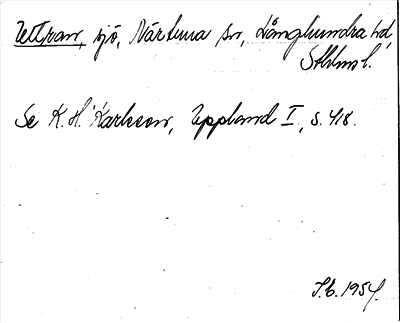 sjö, Närtuna sn, Långhundra hd,
Sthlms l.
Se K. H. Karlsson, Uppland I, s. 418.
1954.